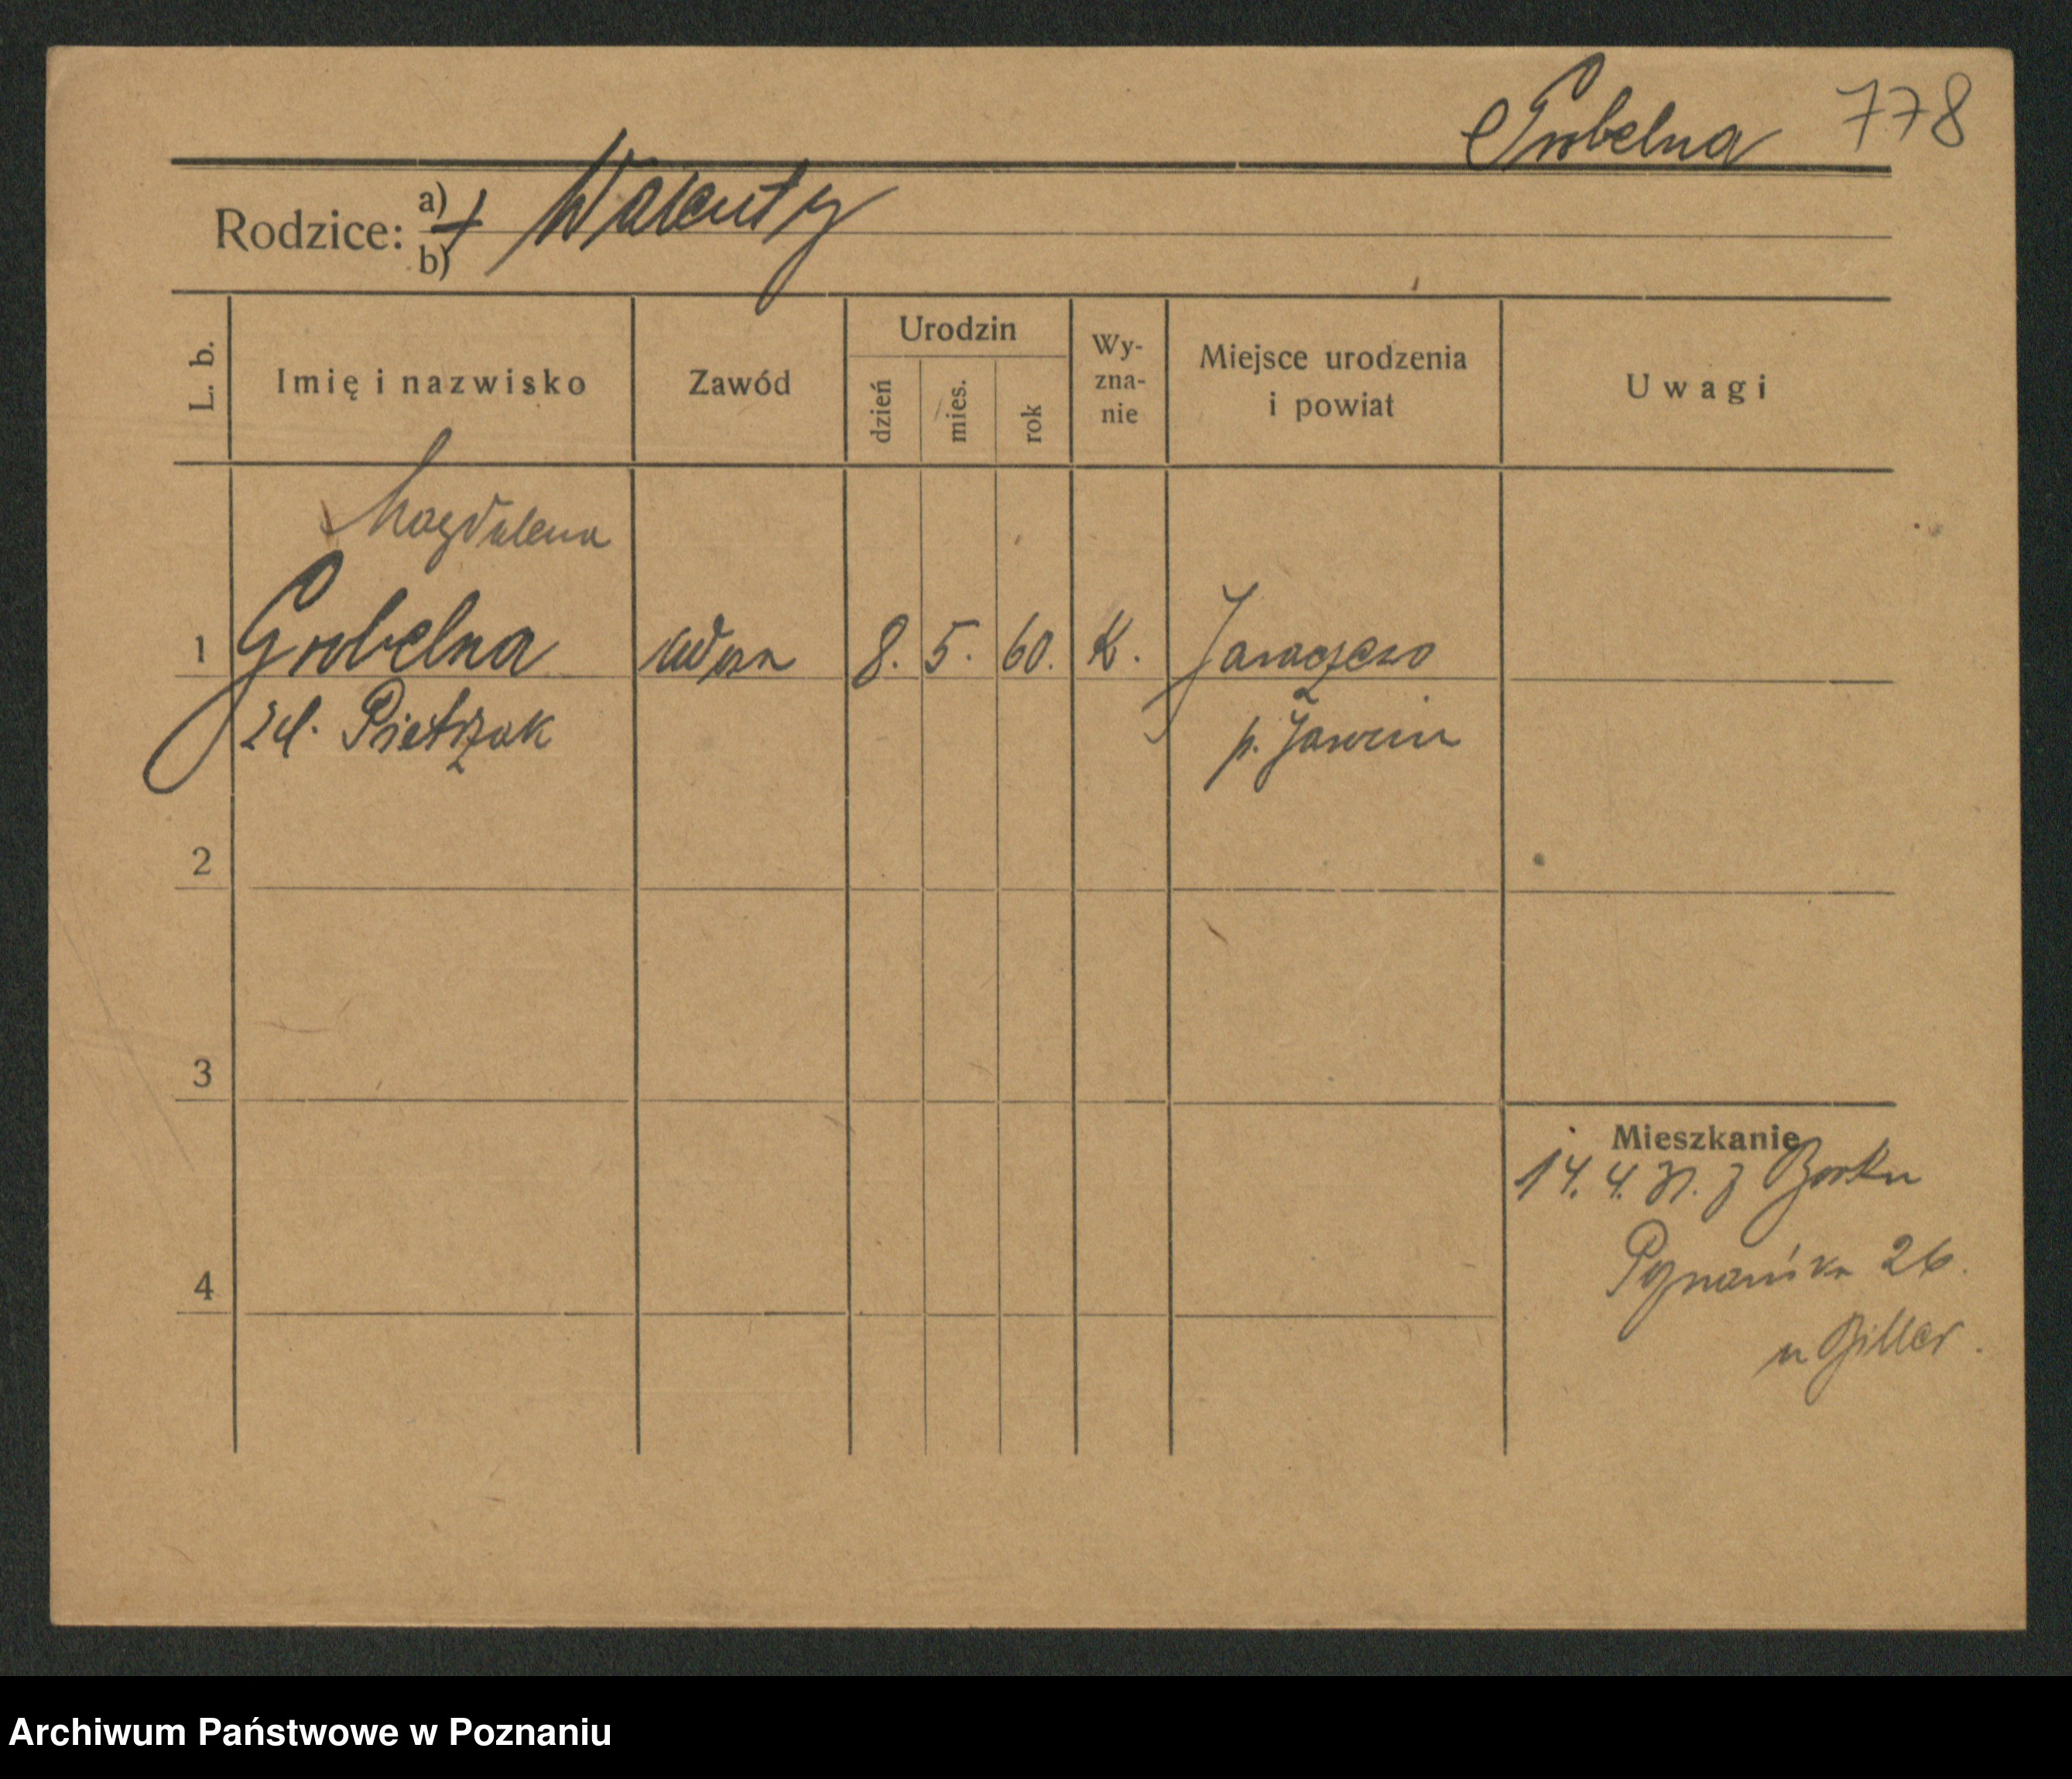 Grobelna 778
Rodzice: a) + Walenty
b)
L. b.
Imię i nazwisko
Zawód
Urodzin
dzień
mies.
rok
Wy-
zna-
nie
Miejsce urodzenia
i powiat
Uwagi
Magdalena
1 Grobelna wdowa 8. 5. 60. K. Jaraczewo
zd. Pietrzak p. Jarocin
2
3
4
Mieszkanie
14. 4. 31. z Borku
Poznańska 26.
u Biller.
Archiwum Państwowe w Poznaniu